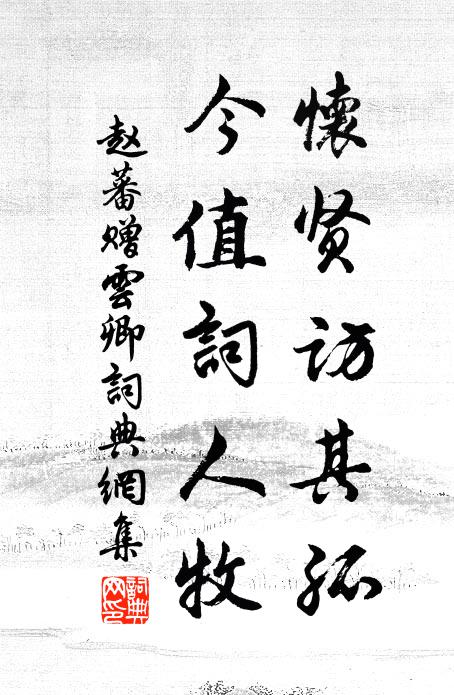 懷贤访其孤
今值詞人牧
赵蕃赠雲卿詞典網集
詞典网印